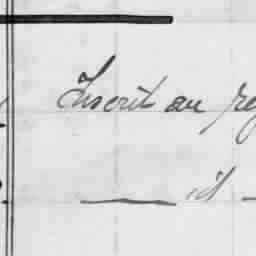 Inscrit au reg
— id —